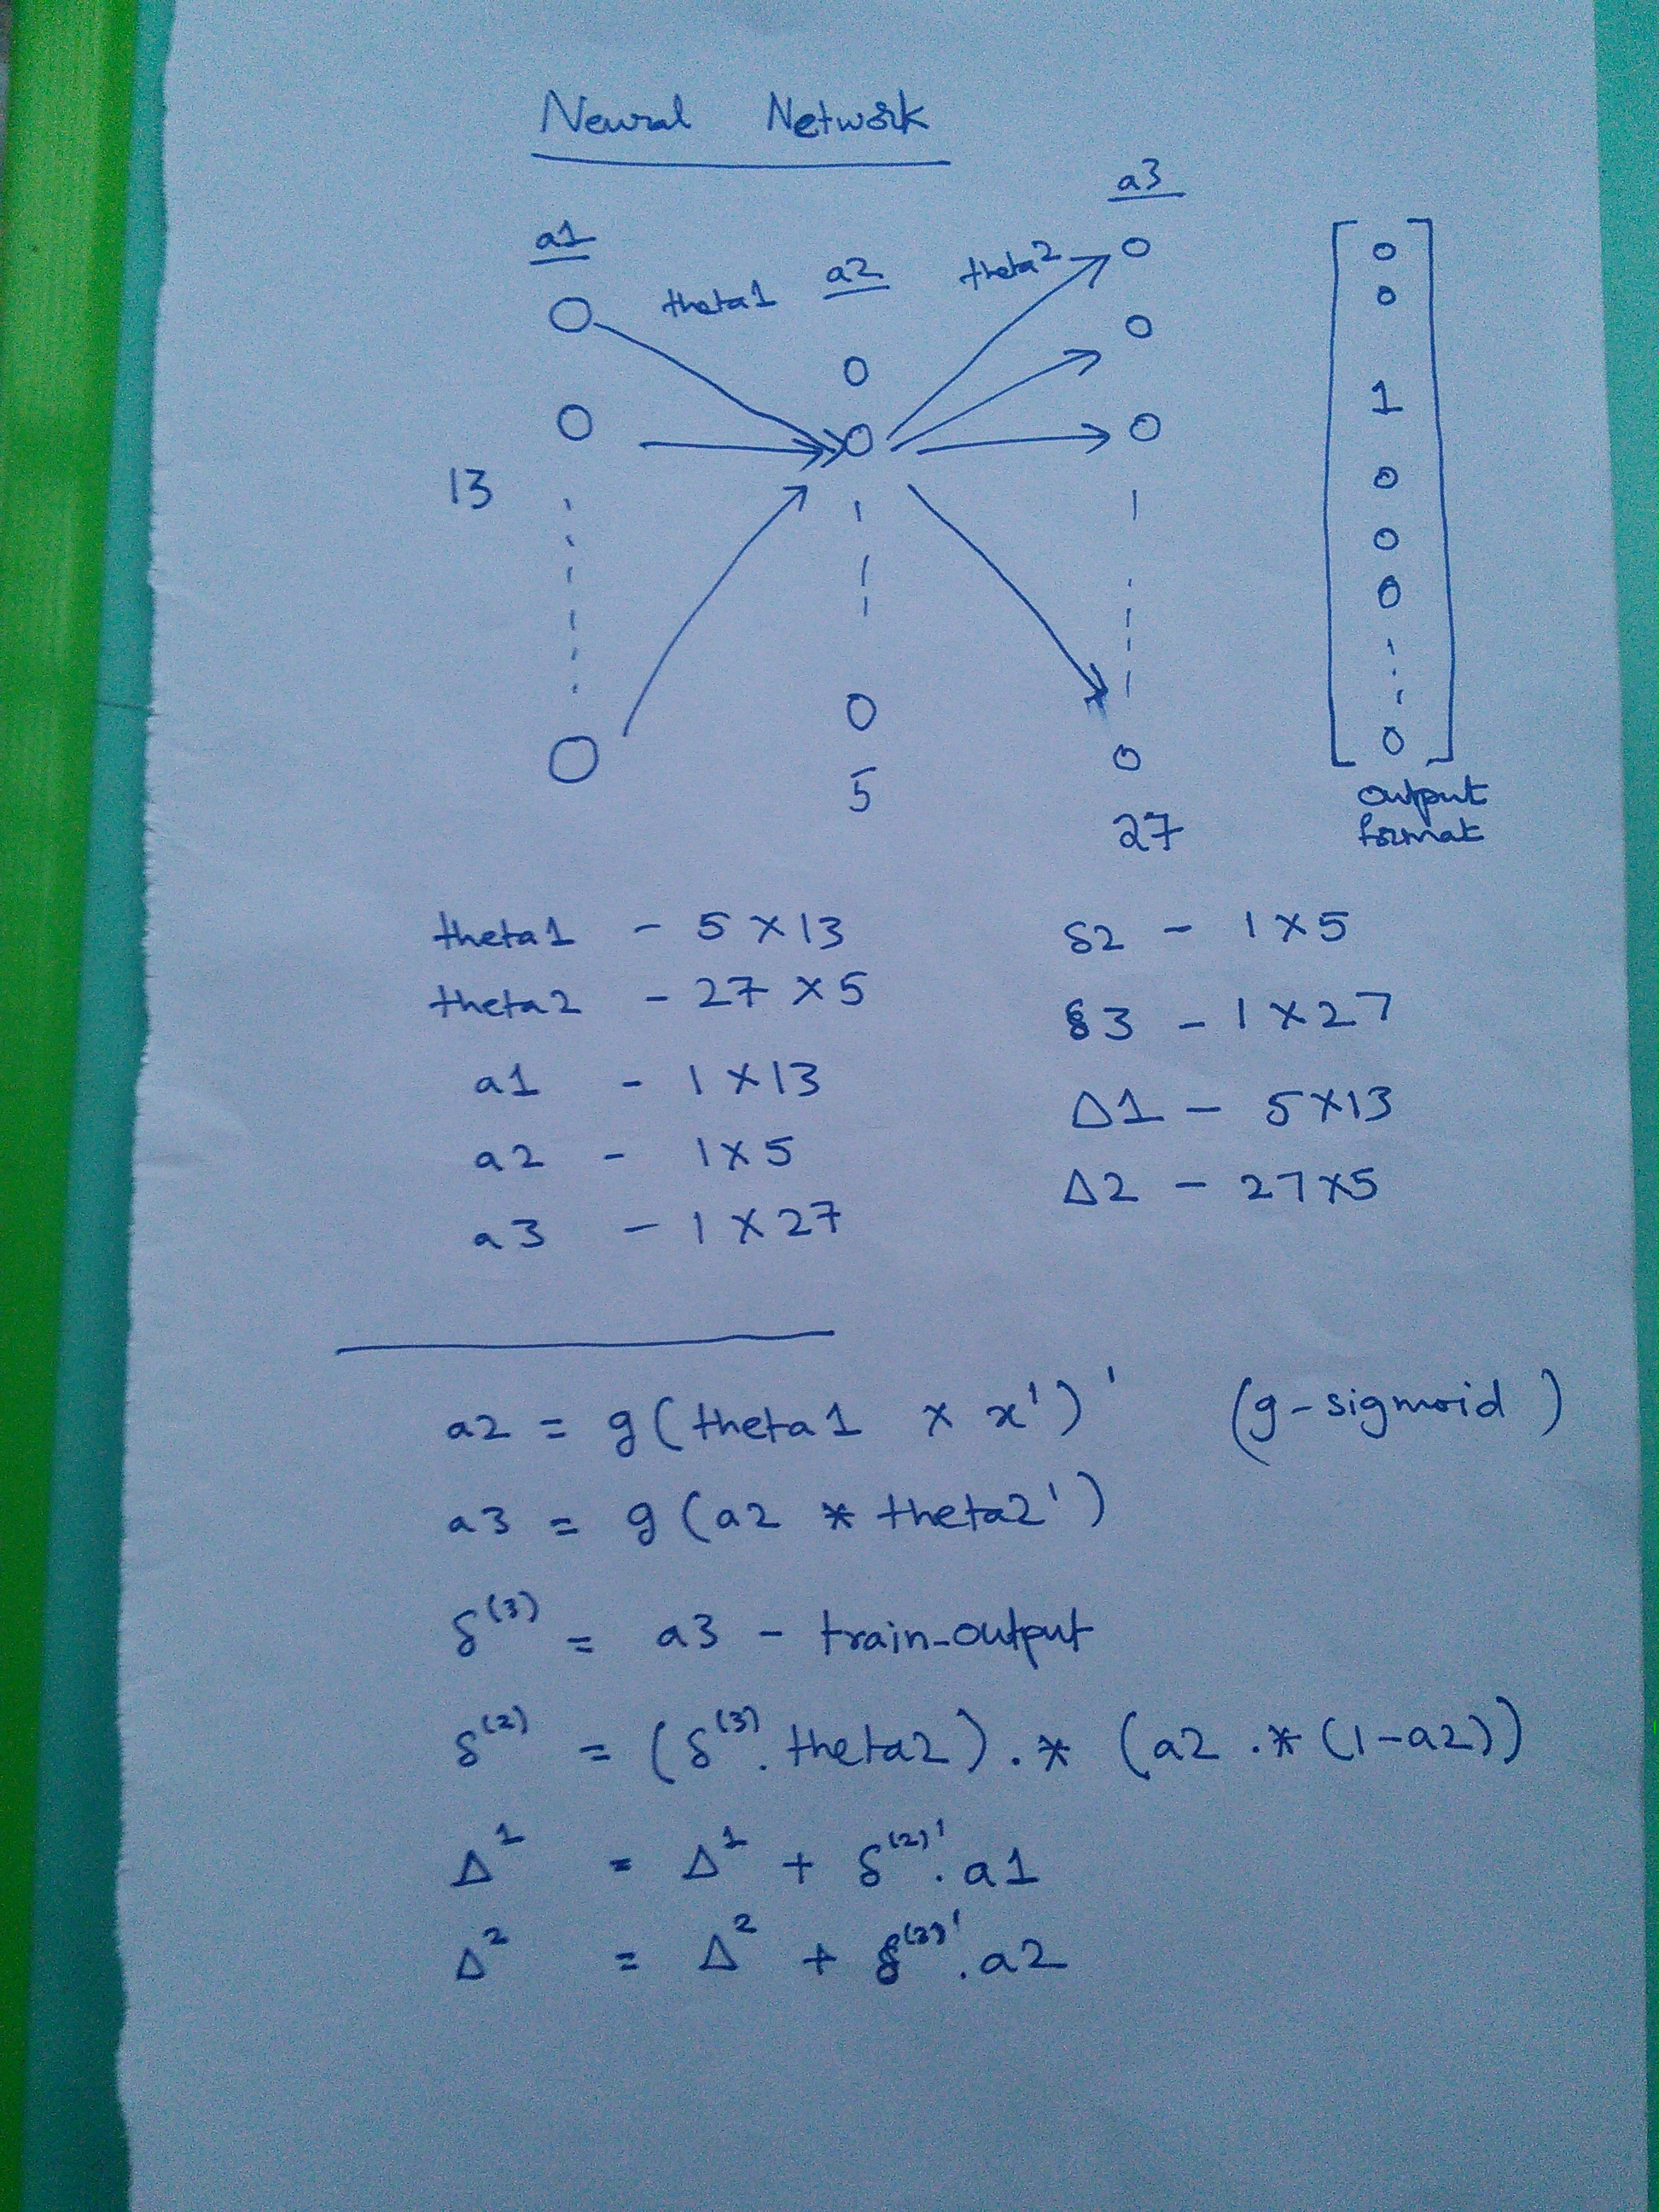 Neural Network
a1 theta1 a2 theta2 a3
13
5
27
0
0
1
0
0
0
0
output
format
theta1 - 5 X 13
theta2 - 27 X 5
a1 - 1 X 13
a2 - 1 X 5
a3 - 1 X 27
δ2 - 1 X 5
δ3 - 1 X 27
Δ1 - 5 X 13
Δ2 - 27 X 5
a2 = g ( theta1 x x' )' (g-sigmoid)
a3 = g ( a2 * theta2' )
δ⁽³⁾ = a3 - train-output
δ⁽²⁾ = ( δ⁽³⁾ . theta2 ) .* ( a2 .* (1-a2))
Δ¹ = Δ¹ + δ⁽²⁾' . a1
Δ² = Δ² + δ⁽³⁾' . a2